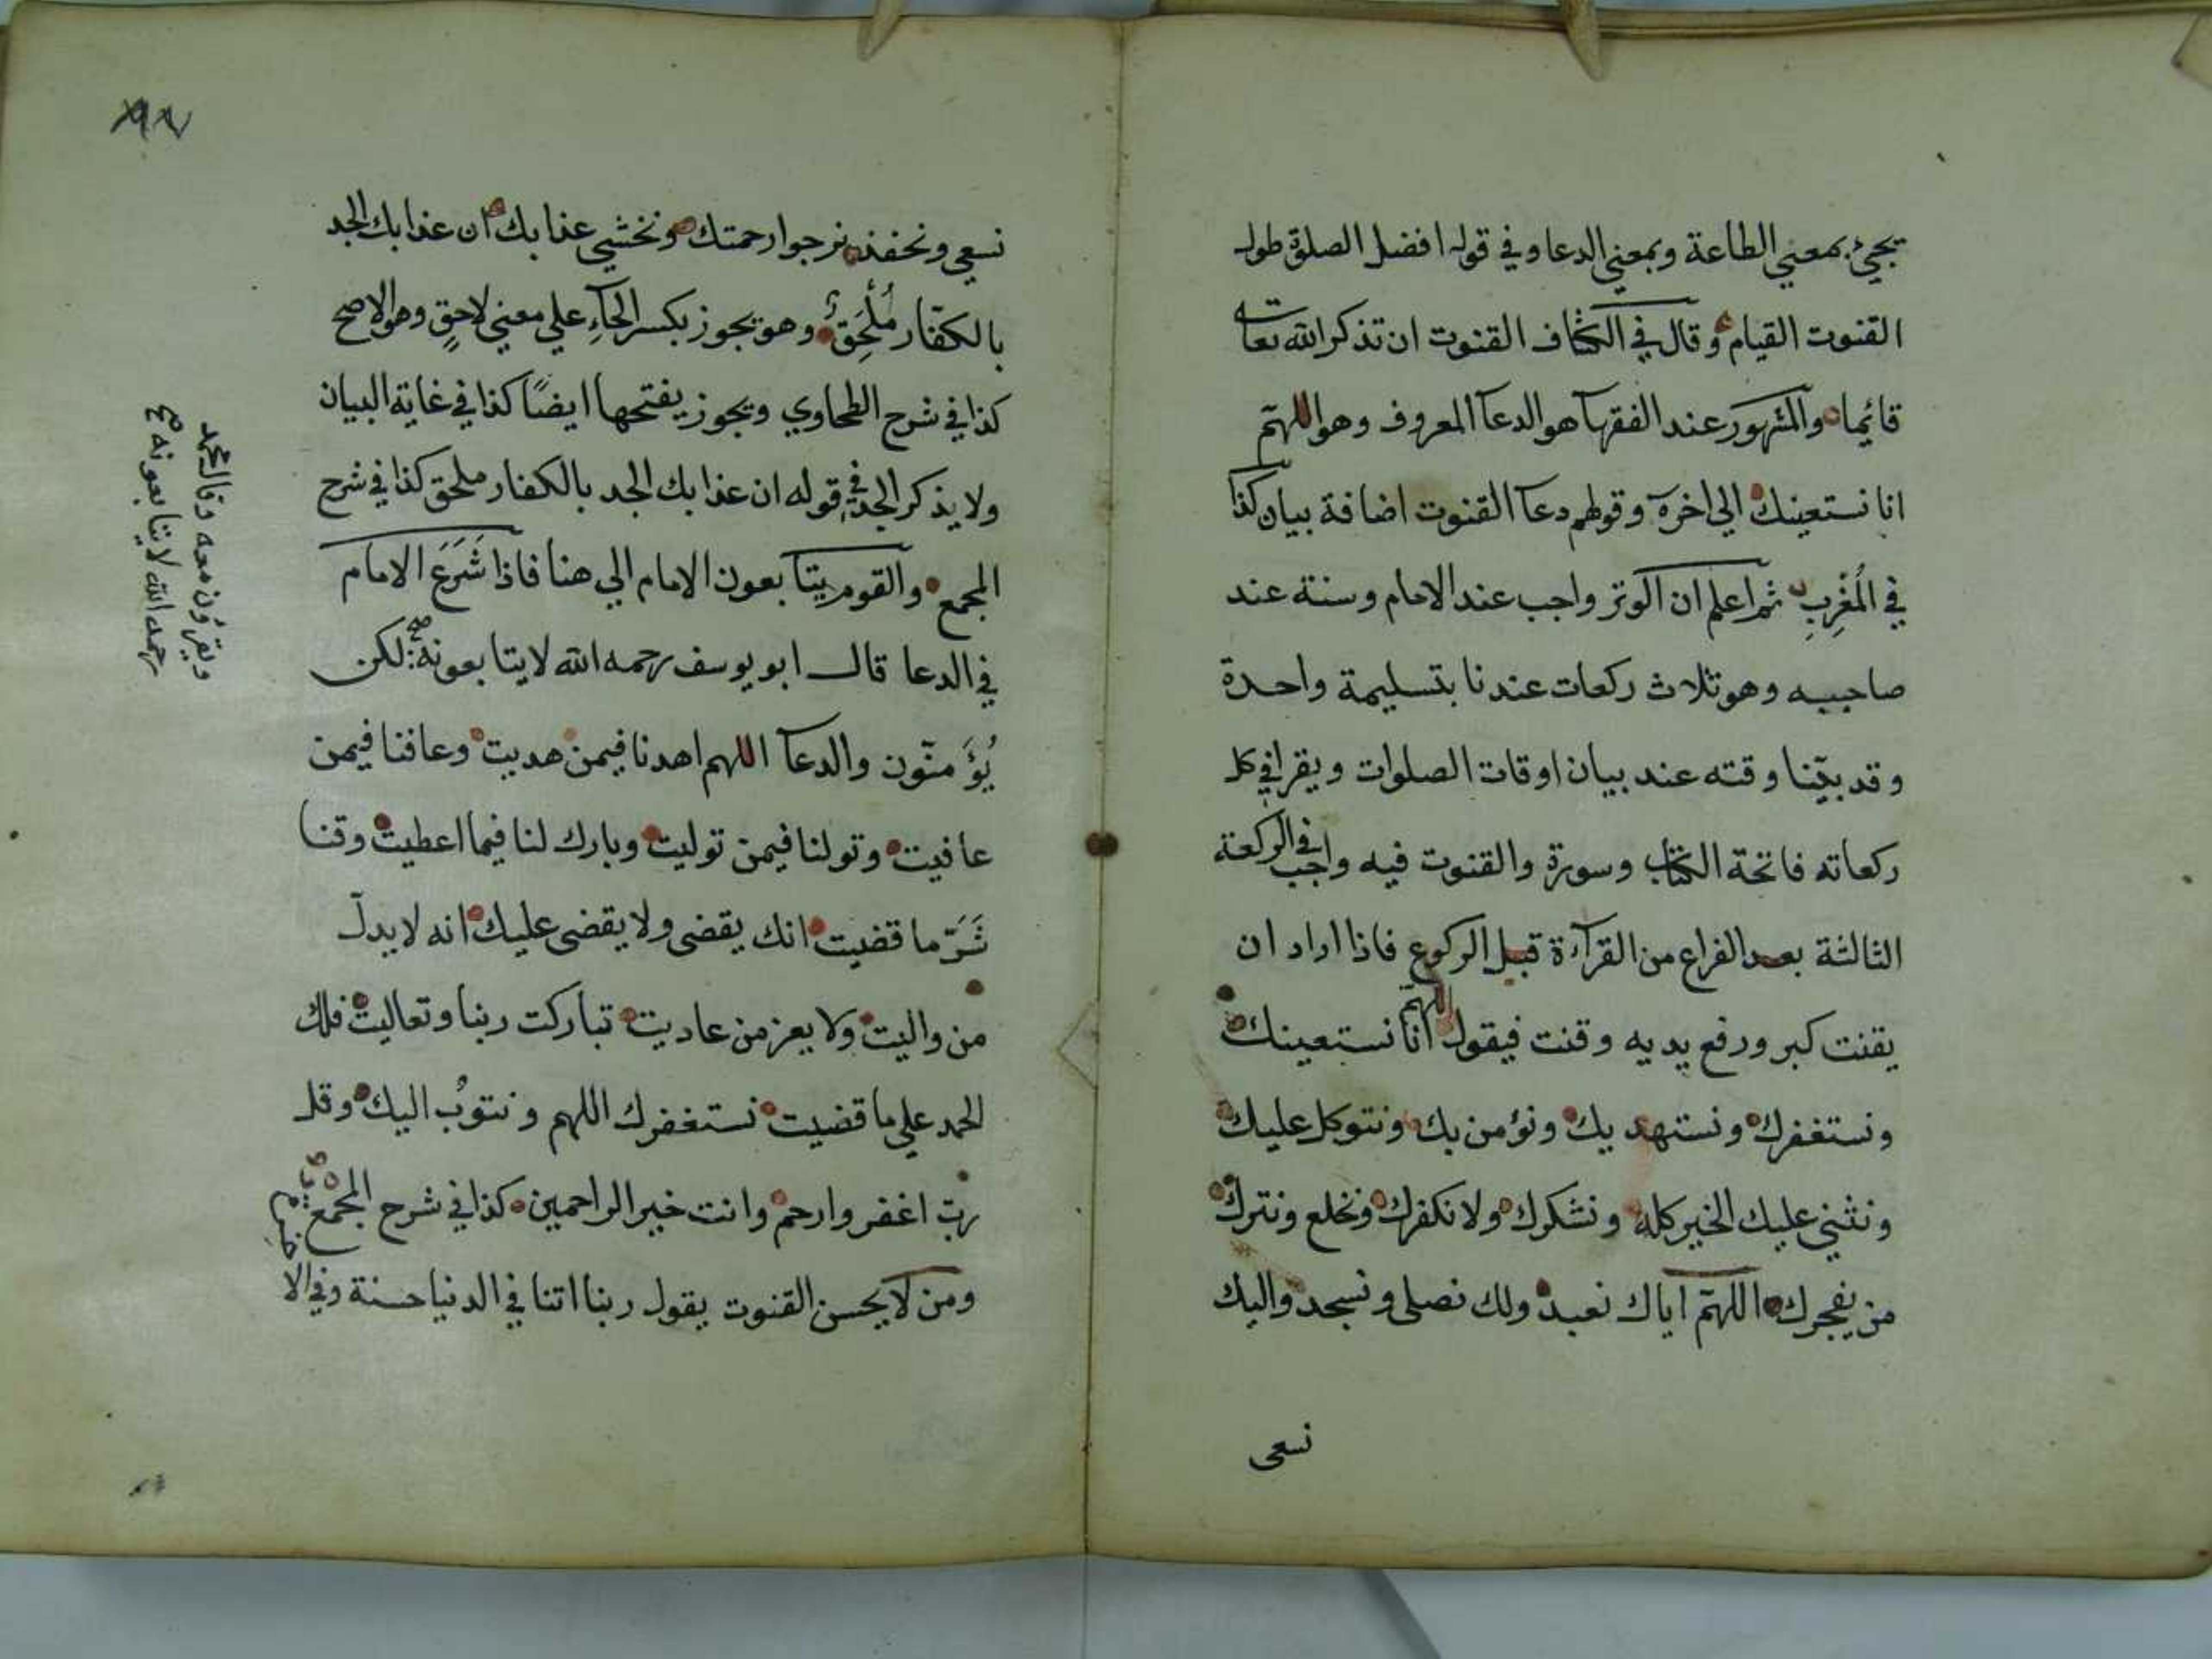 يجيء بمعني الطاعة وبمعني الدعا وفي قوله افضل الصلوة طول
القنوت القيام وقال في الكشاف القنوت ان تذكر الله تعا
قائما والمشهور عند الفقهآ هو الدعآ المعروف وهو اللهمّ
انا نستعينك الي اخره وقولهم دعآ القنوت اضافة بيان كذا
في المُغرِبِ ثم اعلم ان الوتر واجب عند الامام وسنة عند
صاحبيه وهو ثلاث ركعات عندنا بتسليمة واحدة
وقد بيّنا وقته عند بيان اوقات الصلوات ويقرا في كل
ركعاته فاتحة الكتاب وسورة والقنوت فيه واجب في الركعة
الثالثة بعد الفراغ من القرآءة قبل الركوع فاذا اراد ان
يقنت كبر ورفع يديه وقنت فيقول اللهمّ انا نستعينك
ونستغفرك ونستهديك ونؤمن بك ونتوكل عليك
ونثني عليك الخير كله ونشكرك ولا نكفرك ونخلع ونترك
من يفجرك اللهمّ اياك نعبد ولك نصلى ونسجد واليك
نسعى
نسعي ونحفذ نرجوا رحمتك ونخشي عذابك ان عذابك الجد
بالكفّار مُلْحِقٌ وهو يجوز بكسر الحآءِ علي معني لاحقٍ وهو الاصح
كذا في شرح الطحاوي ويجوز بفتحها ايضًا كذا في غاية البيان
ولا يذكر الجد في قوله ان عذابك الجد بالكفار ملحق كذا في شرح
المجمع والقوم يتابعون الامام الي هنا فاذا شَرَعَ الامام
في الدعا قال ابو يوسف رحمه الله لا يتابعونه لكن
يُؤَمنّون والدعآ اللهم اهدنا فيمن هديت وعافنا فيمن
عافيت وتولنا فيمن توليت وبارك لنا فيما اعطيت وقنا
شَرَّ ما قضيت انك يقضى ولا يقضى عليك انه لا يدلّ
من واليت ولا يعز من عاديت تباركت ربنا وتعاليت فلك
الحمد علي ما قضيت نستغفرك اللهم ونتوبُ اليك وقل
ربّ اغفر وارحم وانت خير الراحمين كذا في شرح المجمع
ومن لا يحسن القنوت يقول ربنا اتنا في الدنيا حسنة وفي الا
ويقرؤن معه وقال محمد
رحمه الله لا يتابعونه صح